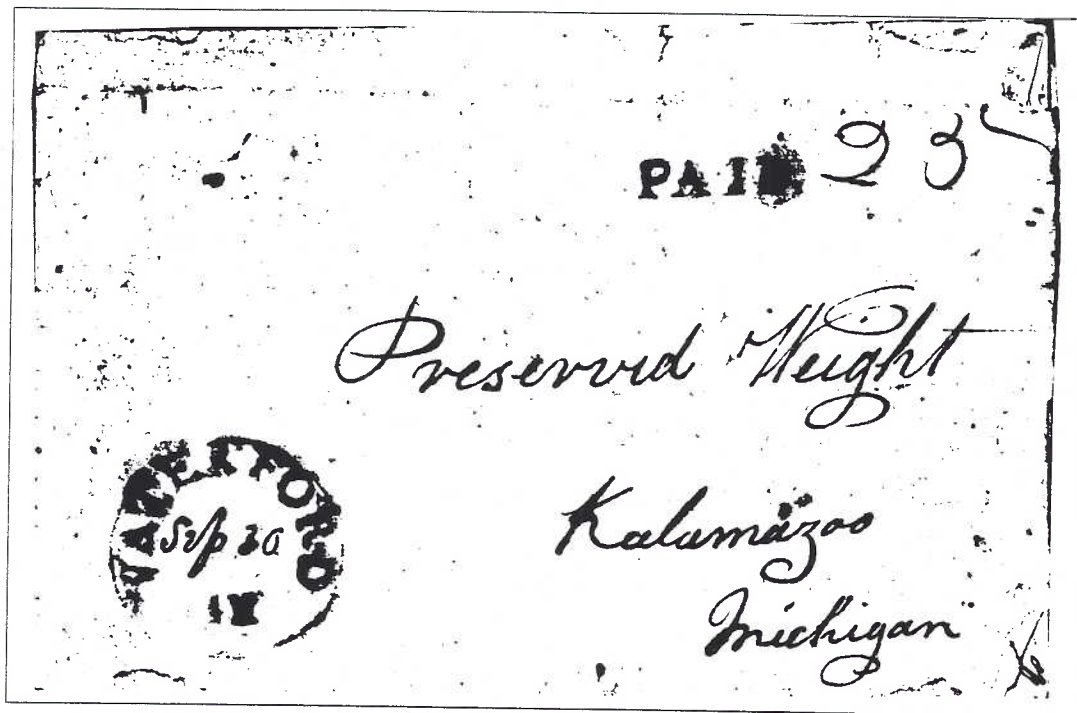 PAID 25
Preserved Weight
Kalamazoo
Michigan
WATERFORD
Sep 20